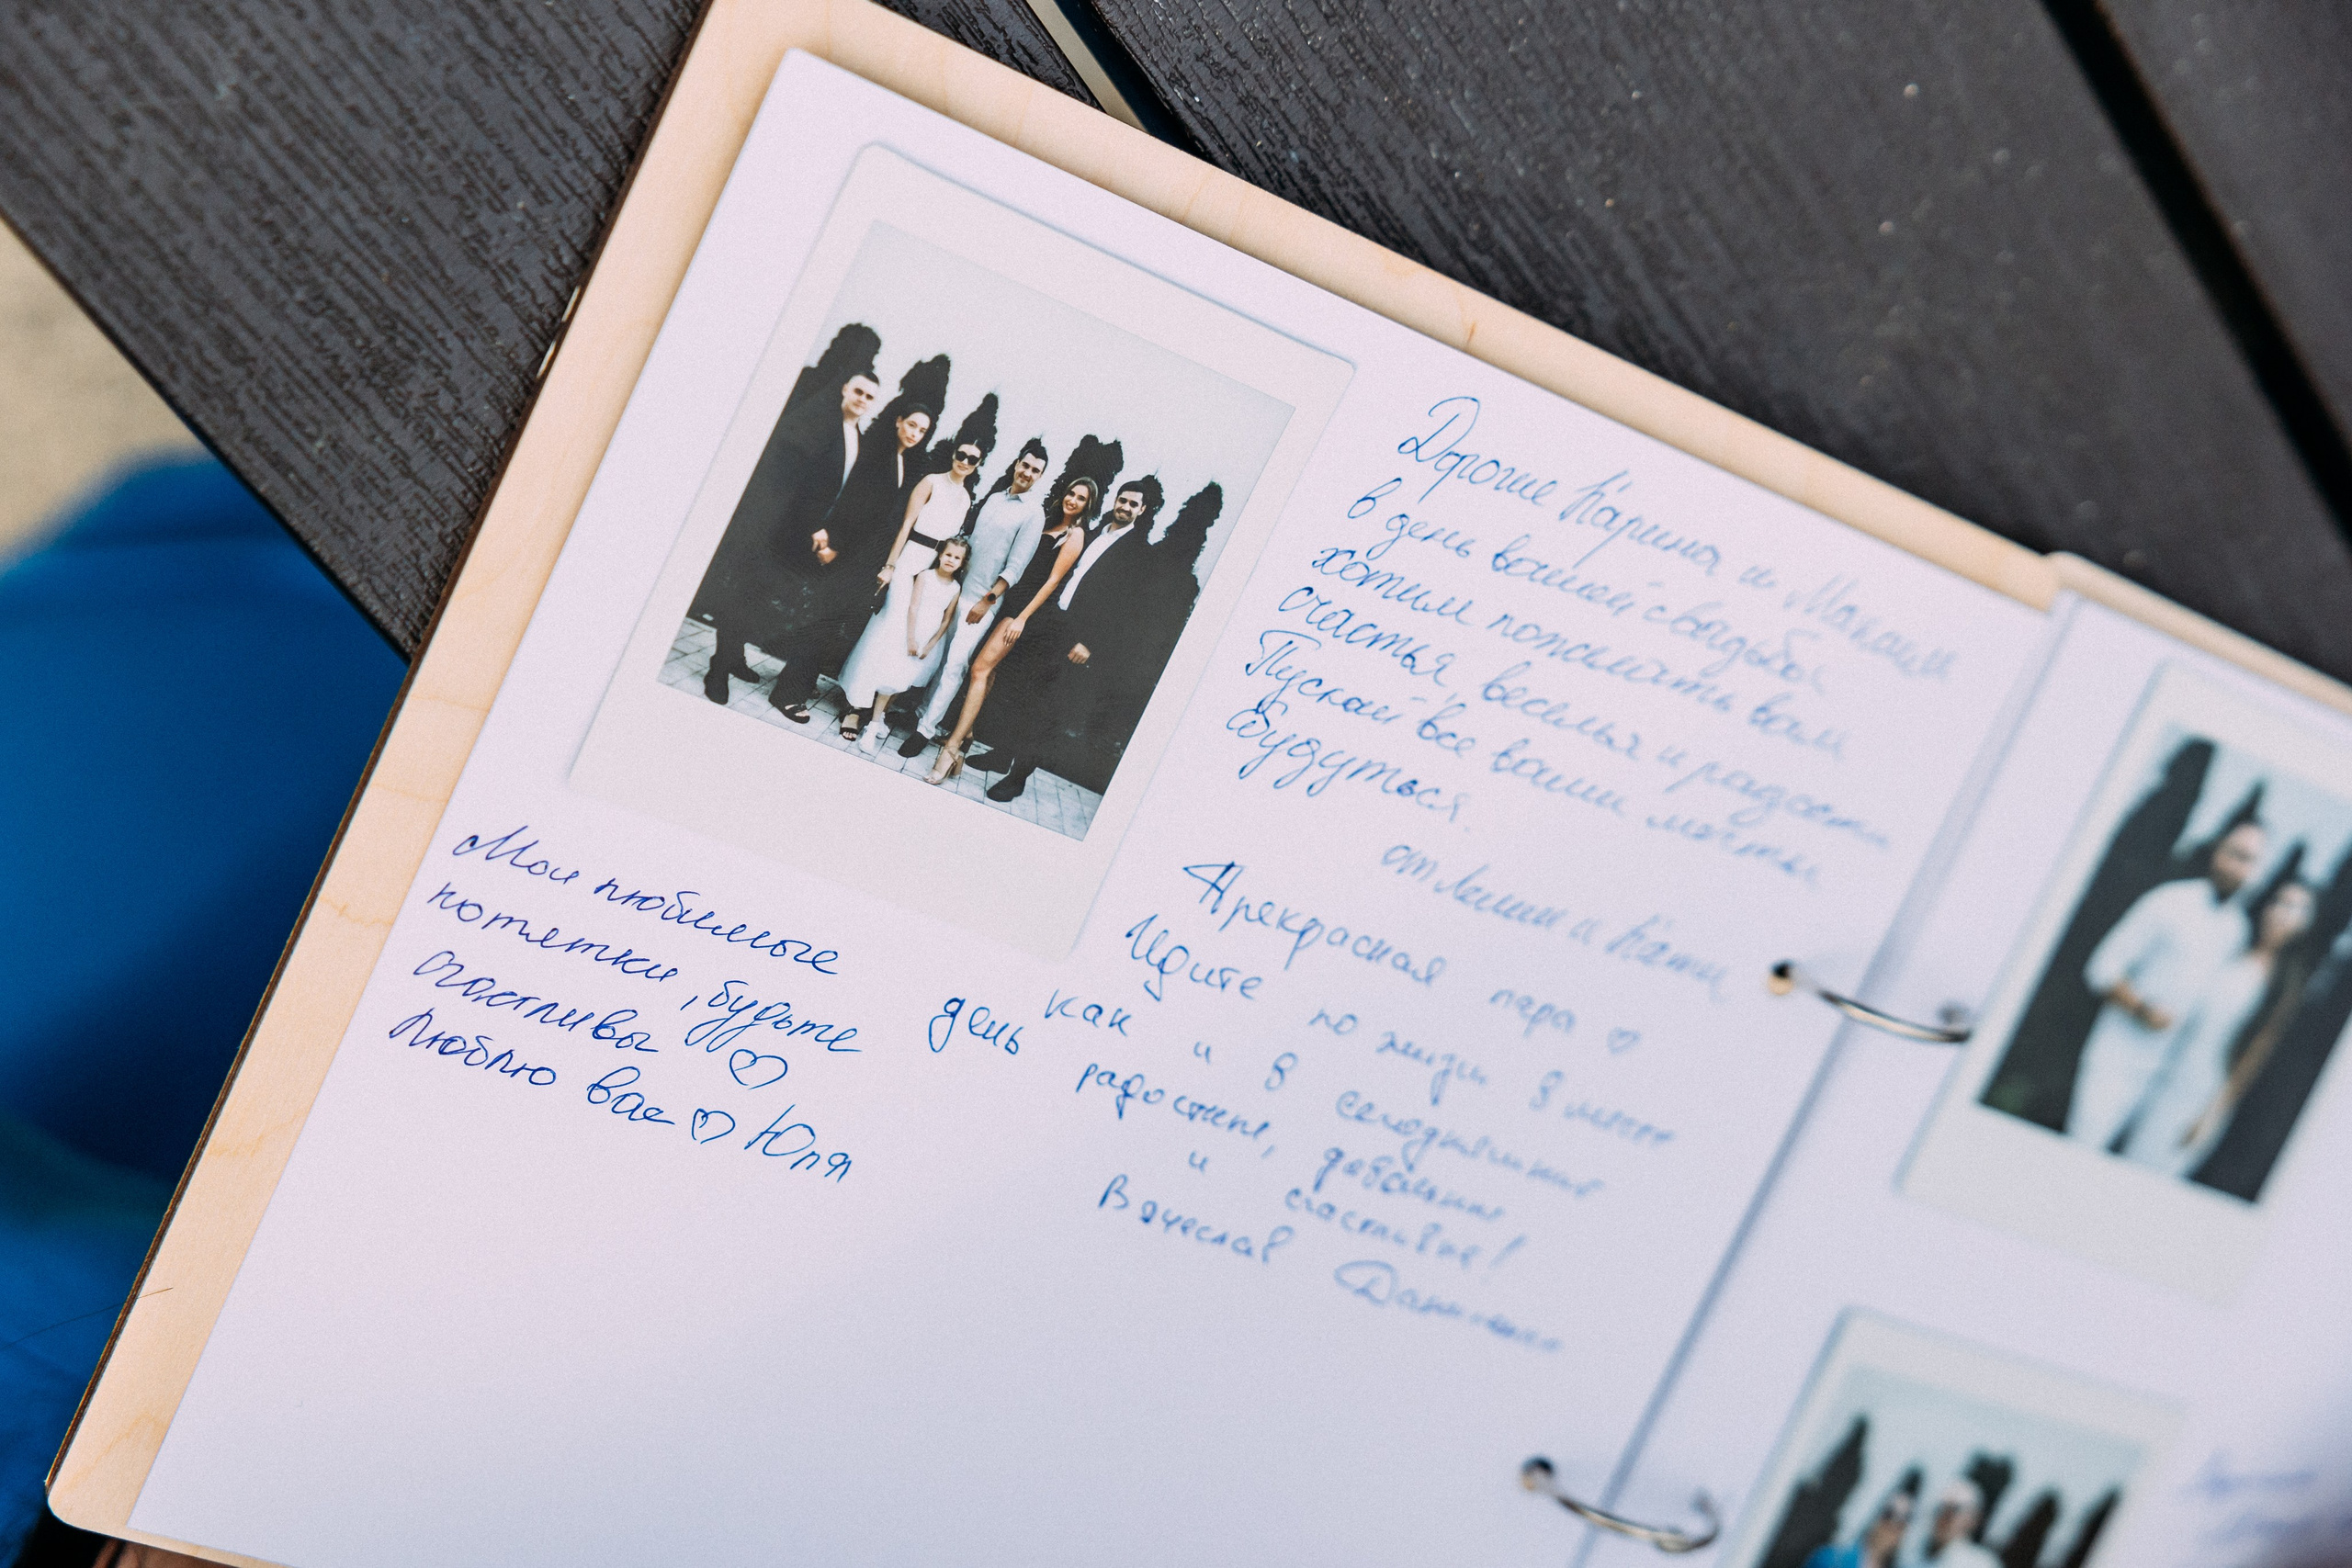 Дорогие Карина и Максим
в день вашей свадьбы
хотим пожелать вам
счастья веселья и радости
Пускай все ваши мечты
сбудуться.
от Лёши и Кати
Мои любимые
котятки, будьте
счастливы ♡
Люблю вас ♡ Юля
Прекрасная пара ♡
Идите по жизни вместе
как и в сегодняшний
день радостные, довольные
и счастливые!
Вячеслав